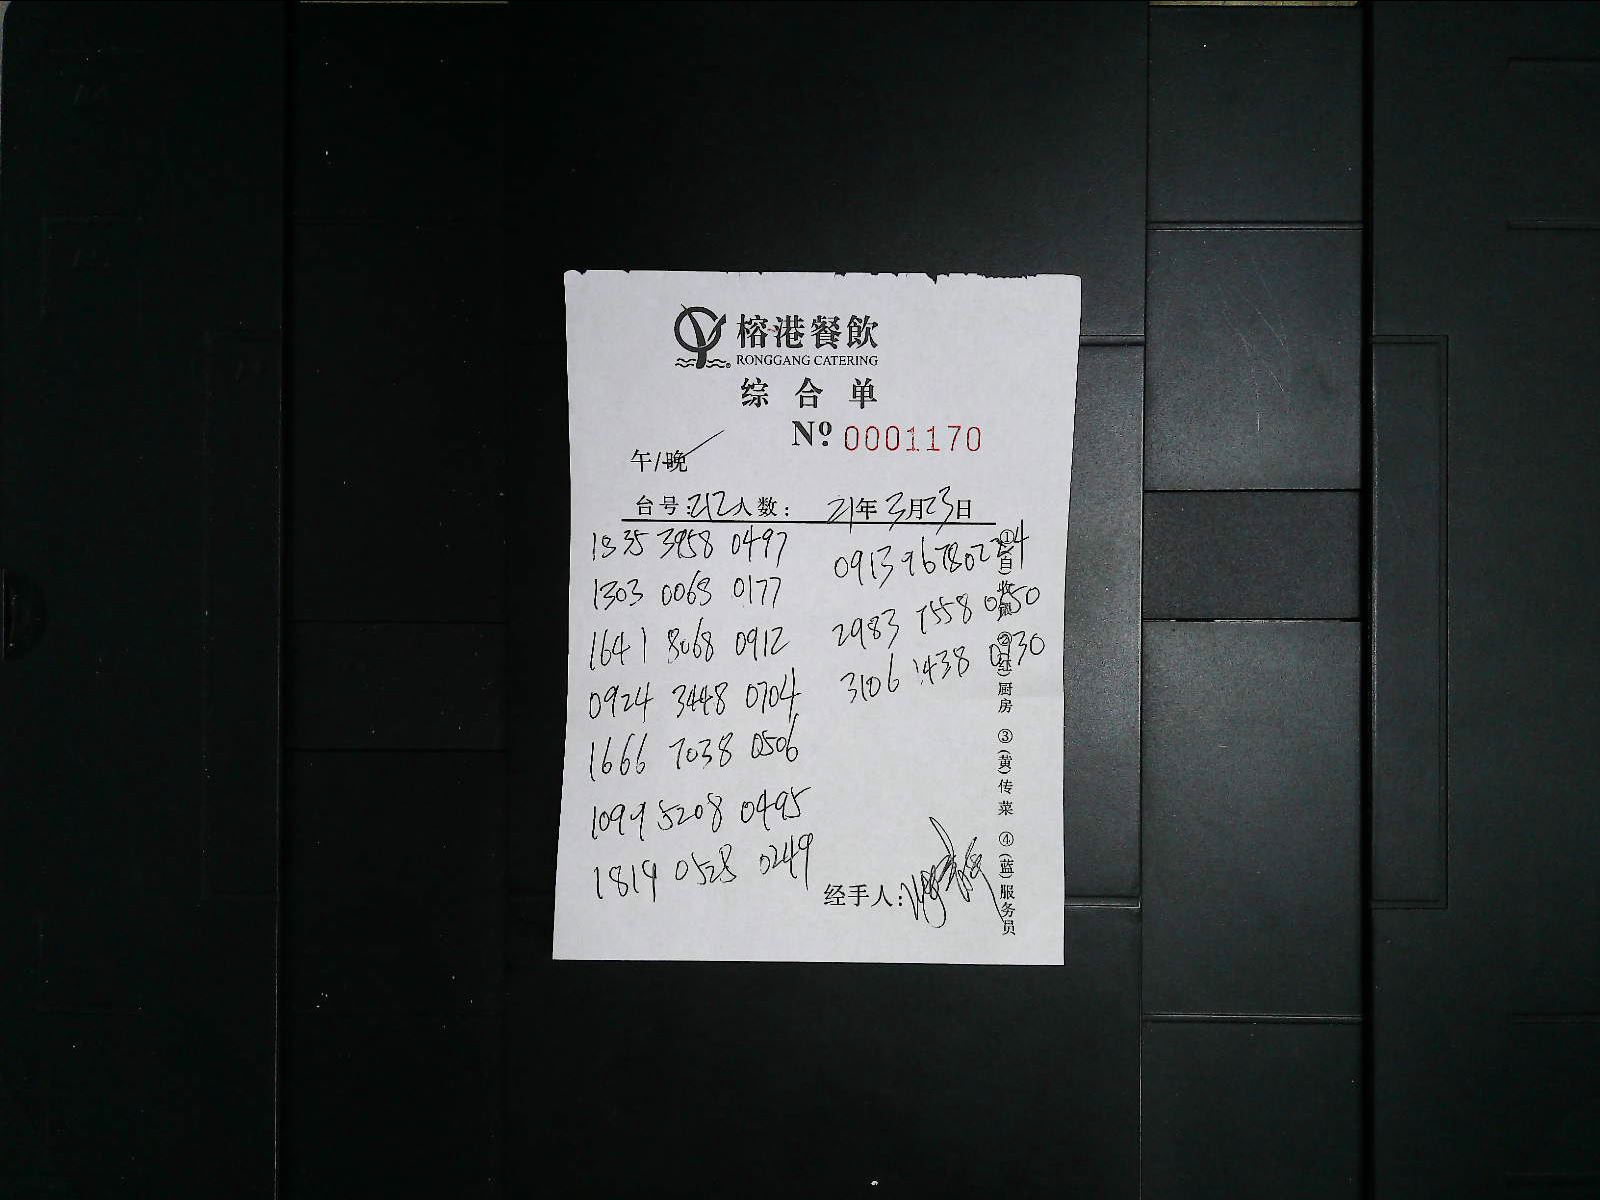 榕港餐飲
RONGGANG CATERING
综合单
Nº 0001170
午/晚
台号:212人数: 21年3月23日
1335 3958 0497
1303 0068 0177
1641 8068 0912
0924 3448 0704
1666 7038 0506
1099 5208 0495
1819 0528 0249
0913 9678
2983 7558
3106 1438
经手人:
①(白)收银 ②(红)厨房 ③(黄)传菜 ④(蓝)服务员